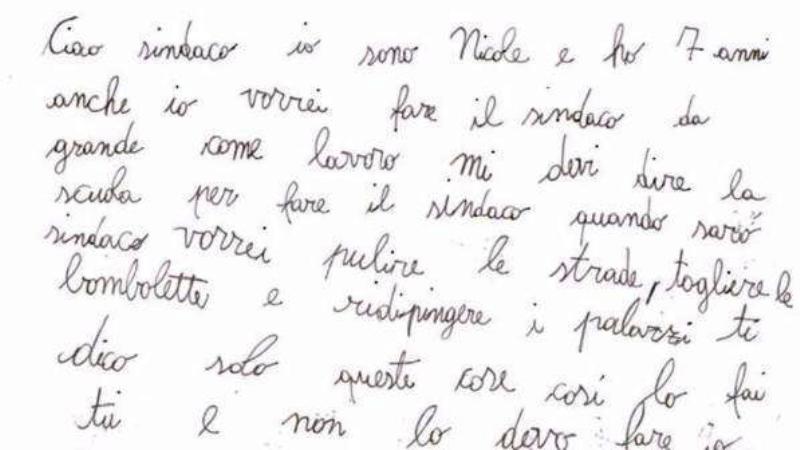 Ciao sindaco io sono Nicole e ho 7 anni
anche io vorrei fare il sindaco da
grande come lavoro mi devi dire la
scuola per fare il sindaco quando sarò
sindaco vorrei pulire le strade, togliere le
bombolette e ridipingere i palazzi ti
dico solo queste cose così lo fai
tu e non lo devo fare io